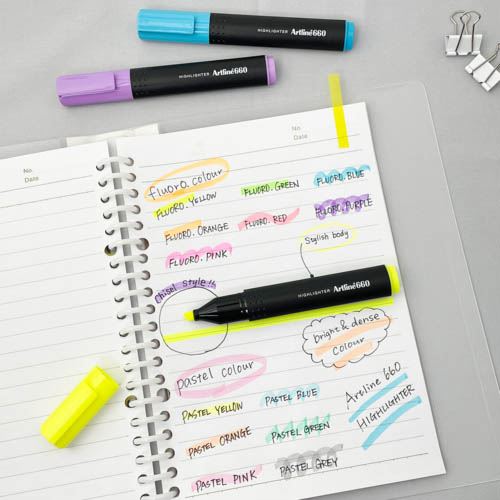 HIGHLIGHTER Artline 660
HIGHLIGHTER Artline 660
No.
Date
No.
Date
fluoro. colour
FLUORO. YELLOW
FLUORO. GREEN
FLUORO. BLUE
FLUORO. ORANGE
FLUORO. RED
FLUORO. PURPLE
FLUORO. PINK
Stylish body
Chisel style!!
HIGHLIGHTER Artline 660
bright & dense
colour
pastel colour
PASTEL YELLOW
PASTEL BLUE
PASTEL ORANGE
PASTEL GREEN
PASTEL PINK
PASTEL GREY
Artline 660
HIGHLIGHTER